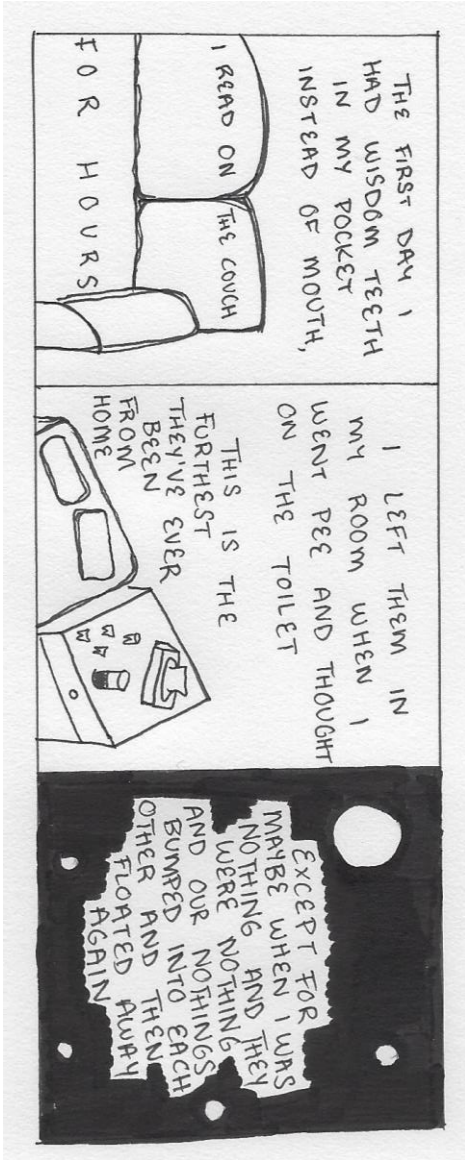 THE FIRST DAY I
HAD WISDOM TEETH
IN MY POCKET
INSTEAD OF MOUTH,
I READ ON THE COUCH
FOR HOURS
I LEFT THEM IN
MY ROOM WHEN I
WENT PEE AND THOUGHT
ON THE TOILET
THIS IS THE
FURTHEST
THEY'VE EVER
BEEN
FROM
HOME
EXCEPT FOR
MAYBE WHEN I WAS
NOTHING AND THEY
WERE NOTHING
AND OUR NOTHINGS
BUMPED INTO EACH
OTHER AND THEN
FLOATED AWAY
AGAIN